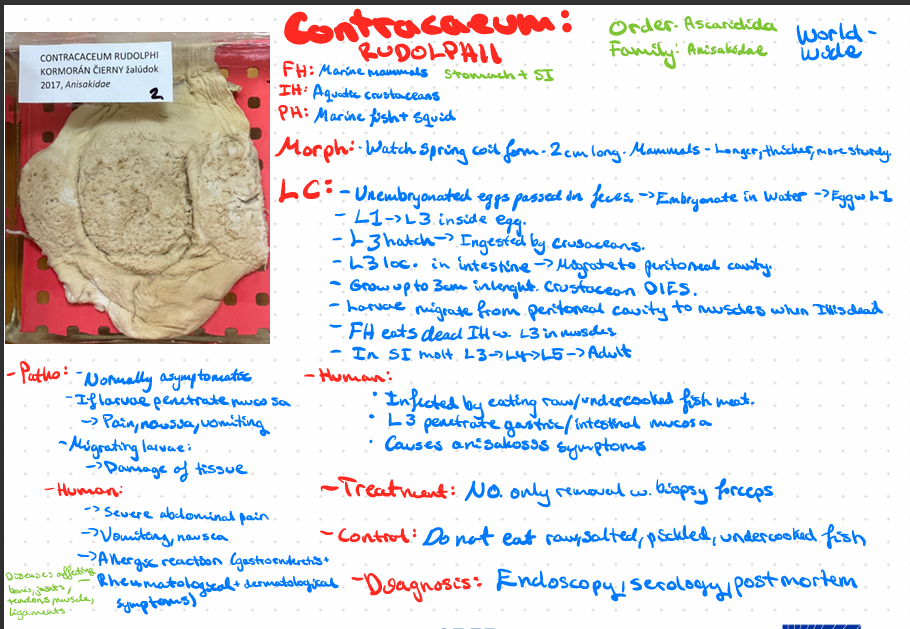 Contracaeum:
RUDOLPHII
Order: Ascaridida
Family: Anisakidae
World-
wide
CONTRACACEUM RUDOLPHI
KORMORÁN ČIERNY žalúdok
2017, Anisakidae
2
FH: Marine mammals stomach + SI
IH: Aquatic crustaceans
PH: Marine fish + squid
Morph: - Watch spring coil form - 2 cm long. Mammals - Longer, thicker, more sturdy.
LC: - Unembryonated eggs passed in feces. -> Embryonate in Water -> Egg w L1
- L1 -> L3 inside egg.
- L3 hatch -> Ingested by crusaceans.
- L3 loc. in intestine -> Migrate to peritoneal cavity.
- Grow up to 3cm in lenght. Crustacean DIES.
- Larvae migrate from peritoneal cavity to muscles when IH is dead
- FH eats dead IH w. L3 in muscles
- In SI molt L3 -> L4 -> L5 -> Adult
- Patho: - Normally asymptomatic
- If larvae penetrate mucosa
-> Pain, nausia, vomiting
- Migrating larvae:
-> Damage of tissue
- Human:
-> Severe abdominal pain
-> Vomiting, nausea
-> Allergic reaction (gastroenteritis +
Rheumatological + dermatological
symptoms)
Diseases affecting
bones, joints,
tendons, muscle,
ligaments
- Human:
• Infected by eating raw/undercooked fish meat.
• L3 penetrate gastric/intestinal mucosa
• Causes anisakosis symptoms
- Treatment: NO. only removal w. biopsy forceps
- Control: Do not eat raw, salted, pickled, undercooked fish
- Diagnosis: Endoscopy, serology, post mortem